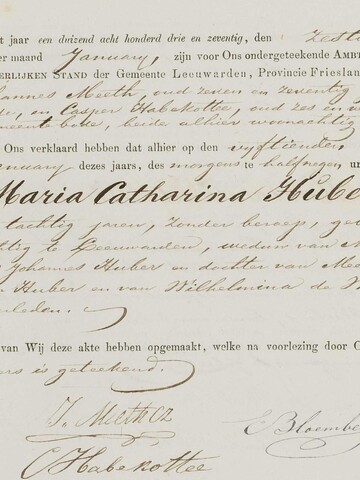 t jaar een duizend acht honderd drie en zeventig, den zesti
er maand January, zijn voor Ons ondergeteekende Ambt
erlijken Stand der Gemeente Leeuwarden, Provincie Frieslan
hannes Meeth, oud zeven en zeventig
en Casper Habekotte, oud zes en
beide alhier woonachtig
Ons verklaard hebben dat alhier op den vyftienden
anuary dezes jaars, des morgens te halfnegen u
Maria Catharina Hube
tachtig jaren, zonder beroep, ge
tig te Leeuwarden, weduw van
Johannes Huber en dochter van Me
Huber en van Wilhelmina de W
erleden.
van Wij deze akte hebben opgemaakt, welke na voorlezing door O
ers is geteekend.
J. Meeth CZ
C Habekottee
Bloembe